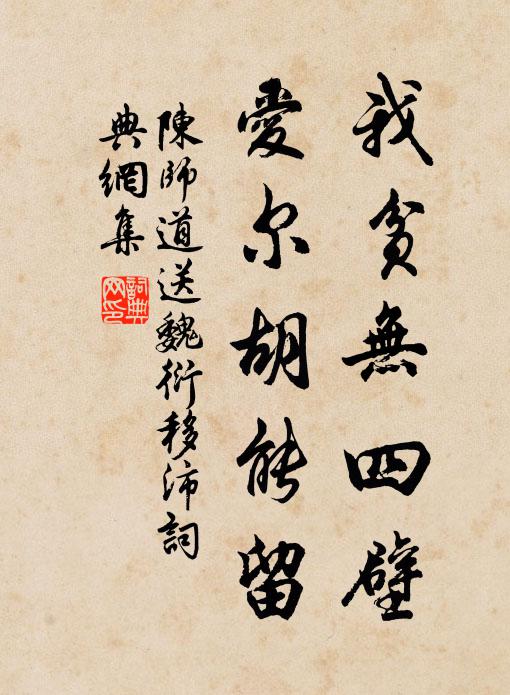 我貧無四壁
愛尔胡能留
陳師道送魏衍移沛詞
典網集
詞典网印